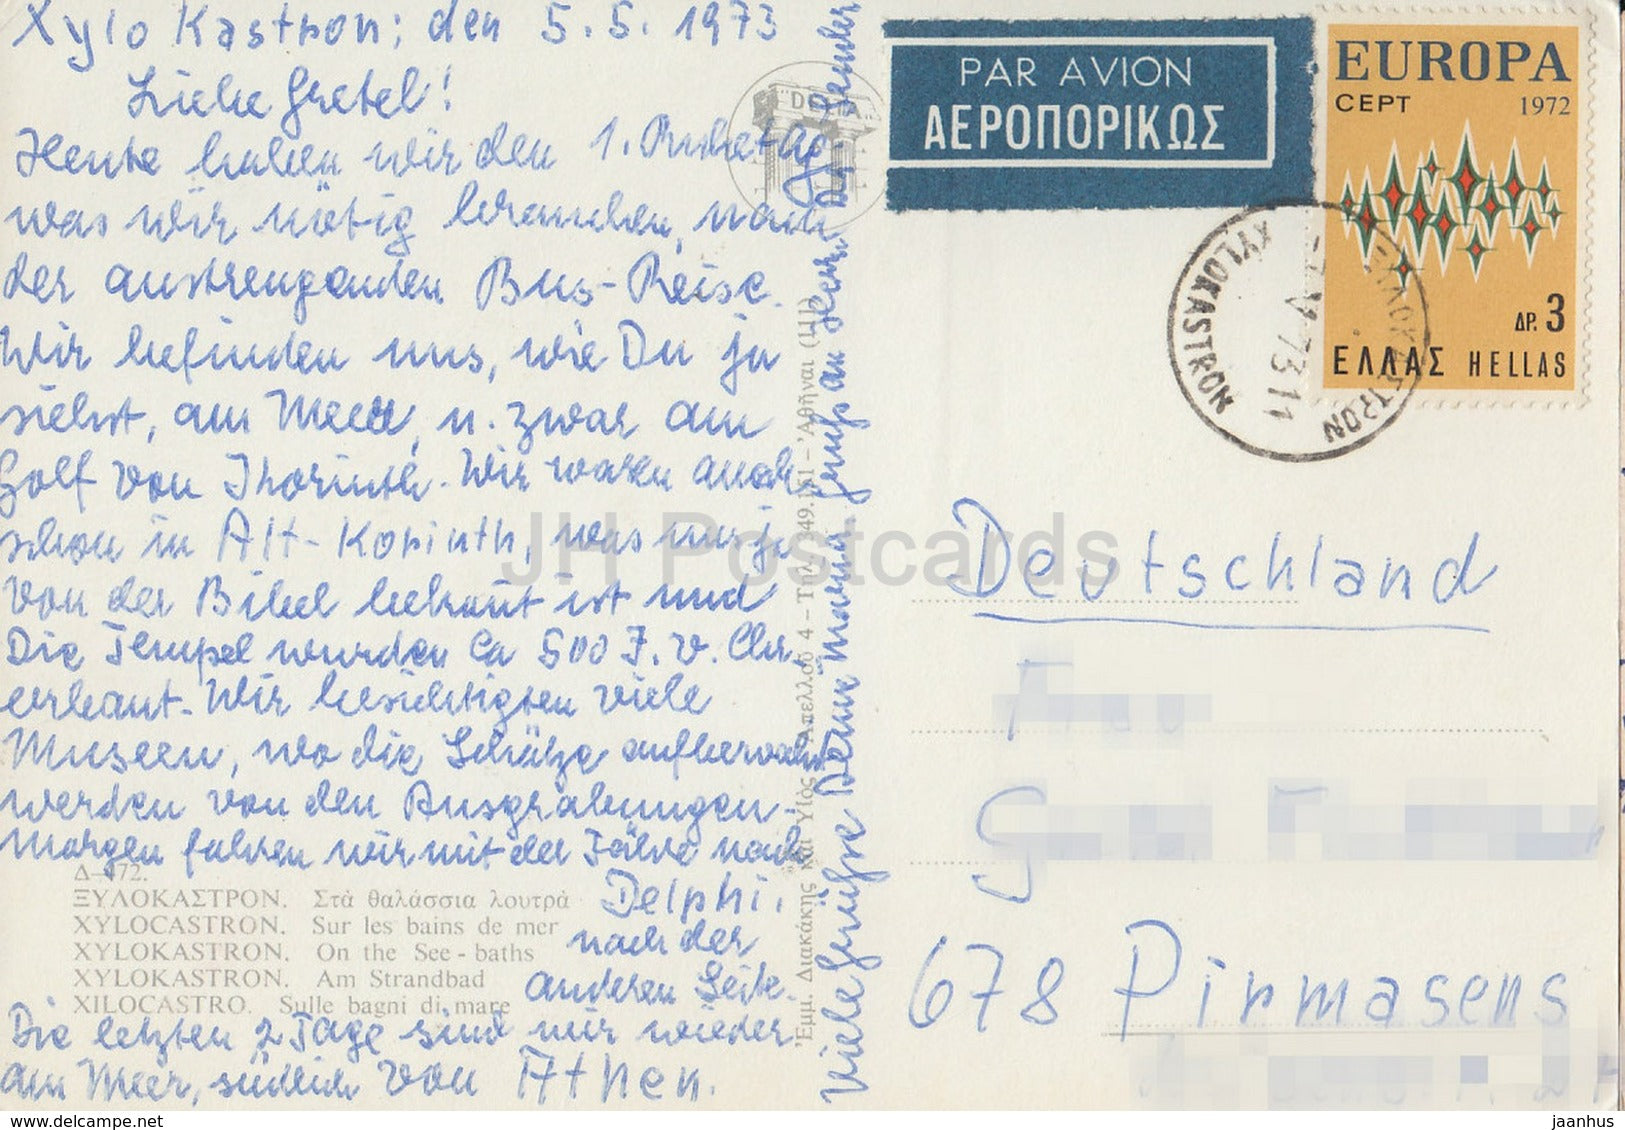 Xylo Kastron; den 5.5.1973
Liebe Gretel!
Heute haben wir den 1. Ruhetag,
was wir nötig brauchen, nach
der anstrengenden Bus-Reise.
Wir befinden uns, wie Du ja
siehst, am Meer, u. zwar am
Golf von Khorinth. Wir waren auch
schon in Alt-Korinth, was uns ja
von der Bibel bekannt ist und
Die Tempel wurden ca 500 J. v. Chr
erbaut. Wir besichtigten viele
Museen, wo die Schätze aufbewahrt
werden von den Ausgrabungen.
Morgen fahren wir mit der Fähre nach
Delphi.
nach der
anderen Seite.
Die letzten 2 Tage sind wir wieder
am Meer, südlich von Athen.
Viele Grüße Deine Mama. Gruß an
Δ-172.
ΞΥΛΟΚΑΣΤΡΟΝ. Στὰ θαλάσσια λουτρὰ
XYLOCASTRON. Sur les bains de mer
XYLOKASTRON. On the See-baths
XYLOKASTRON. Am Strandbad
XILOCASTRO. Sulle bagni di mare
Ἐμμ. Διακάκης καὶ Υἱὸς Ἀπελλοῦ 4 - Τηλ. 349.151 - Ἀθῆναι (111)
DELTA
PAR AVION
ΑΕΡΟΠΟΡΙΚΩΣ
EUROPA
CEPT 1972
ΔΡ. 3
ΕΛΛΑΣ HELLAS
XYLOKASTRON
-7 V 73 11
Deutschland
Frau
678 Pirmasens
JH Postcards
www.delcampe.net
jaanhus